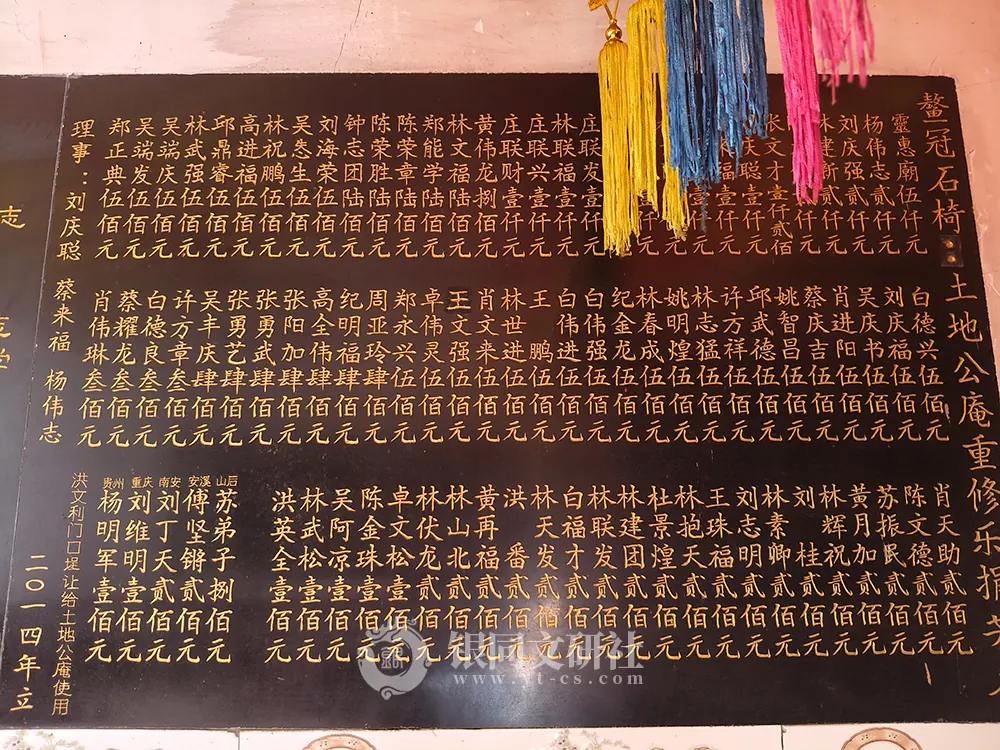 鳌冠石椅：土地公庵重修乐捐芳
靈惠廟伍仟元
杨伟志贰仟元
刘庆强贰仟元
建新贰仟元
文才壹仟贰佰元
庆聪壹仟元
福壹仟元
仟元
仟元
庄联发壹仟元
林联福壹仟元
庄联兴壹仟元
庄联财壹仟元
黄伟龙捌佰元
林文福陆佰元
郑能学陆佰元
陈荣章陆佰元
陈荣胜陆佰元
钟志团陆佰元
刘海荣伍佰元
吴生伍佰元
林祝鹏伍佰元
高进福伍佰元
邱鼎睿伍佰元
林武强伍佰元
吴端庆伍佰元
吴端发伍佰元
郑正典伍佰元
白德兴伍佰元
刘庆福伍佰元
吴庆书伍佰元
肖进阳伍佰元
蔡庆吉伍佰元
姚智昌伍佰元
邱武德伍佰元
许方祥伍佰元
林志猛伍佰元
姚明煌伍佰元
林春成伍佰元
纪金龙伍佰元
白伟强伍佰元
白伟进伍佰元
王鹏伍佰元
林世进伍佰元
肖文来伍佰元
王文强伍佰元
卓伟灵伍佰元
郑永兴伍佰元
周亚玲肆佰元
纪明福肆佰元
高全伟肆佰元
张阳加肆佰元
张勇武肆佰元
张勇艺肆佰元
吴丰庆肆佰元
许方章叁佰元
白德良叁佰元
蔡耀龙叁佰元
肖伟琳叁佰元
肖天助贰佰元
陈文德贰佰元
苏振民贰佰元
黄月加贰佰元
林辉祝贰佰元
刘桂贰佰元
林素卿贰佰元
刘志明贰佰元
王珠福贰佰元
林抱天贰佰元
杜景煌贰佰元
林建团贰佰元
林联发贰佰元
白福才贰佰元
林天发贰佰元
洪番贰佰元
黄再福贰佰元
林山北贰佰元
林伏龙贰佰元
卓文松壹佰元
陈金珠壹佰元
吴阿凉壹佰元
林武松壹佰元
洪英全壹佰元
山后 苏弟子捌佰元
安溪 傅坚锵贰佰元
南安 刘丁天贰佰元
重庆 刘维明壹佰元
贵州 杨明军壹佰元
理事：刘庆聪 蔡来福 杨伟志
洪文利门口埕让给土地公庵使用
二〇一四年立
志
银同文研社
www.yt-cs.com